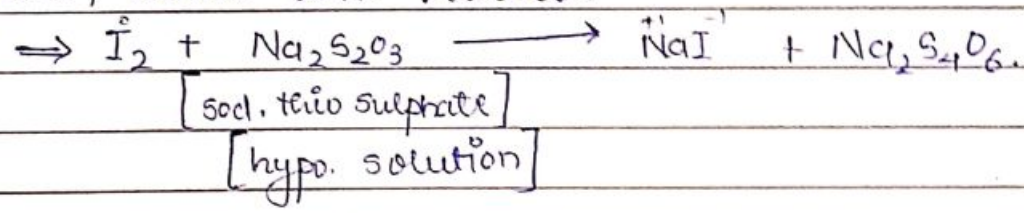 ⇒ I₂⁰ + Na₂S₂O₃ ⟶ Na⁺¹I⁻¹ + Na₂S₄O₆.
[sod. thio sulphate]
[hypo. solution]